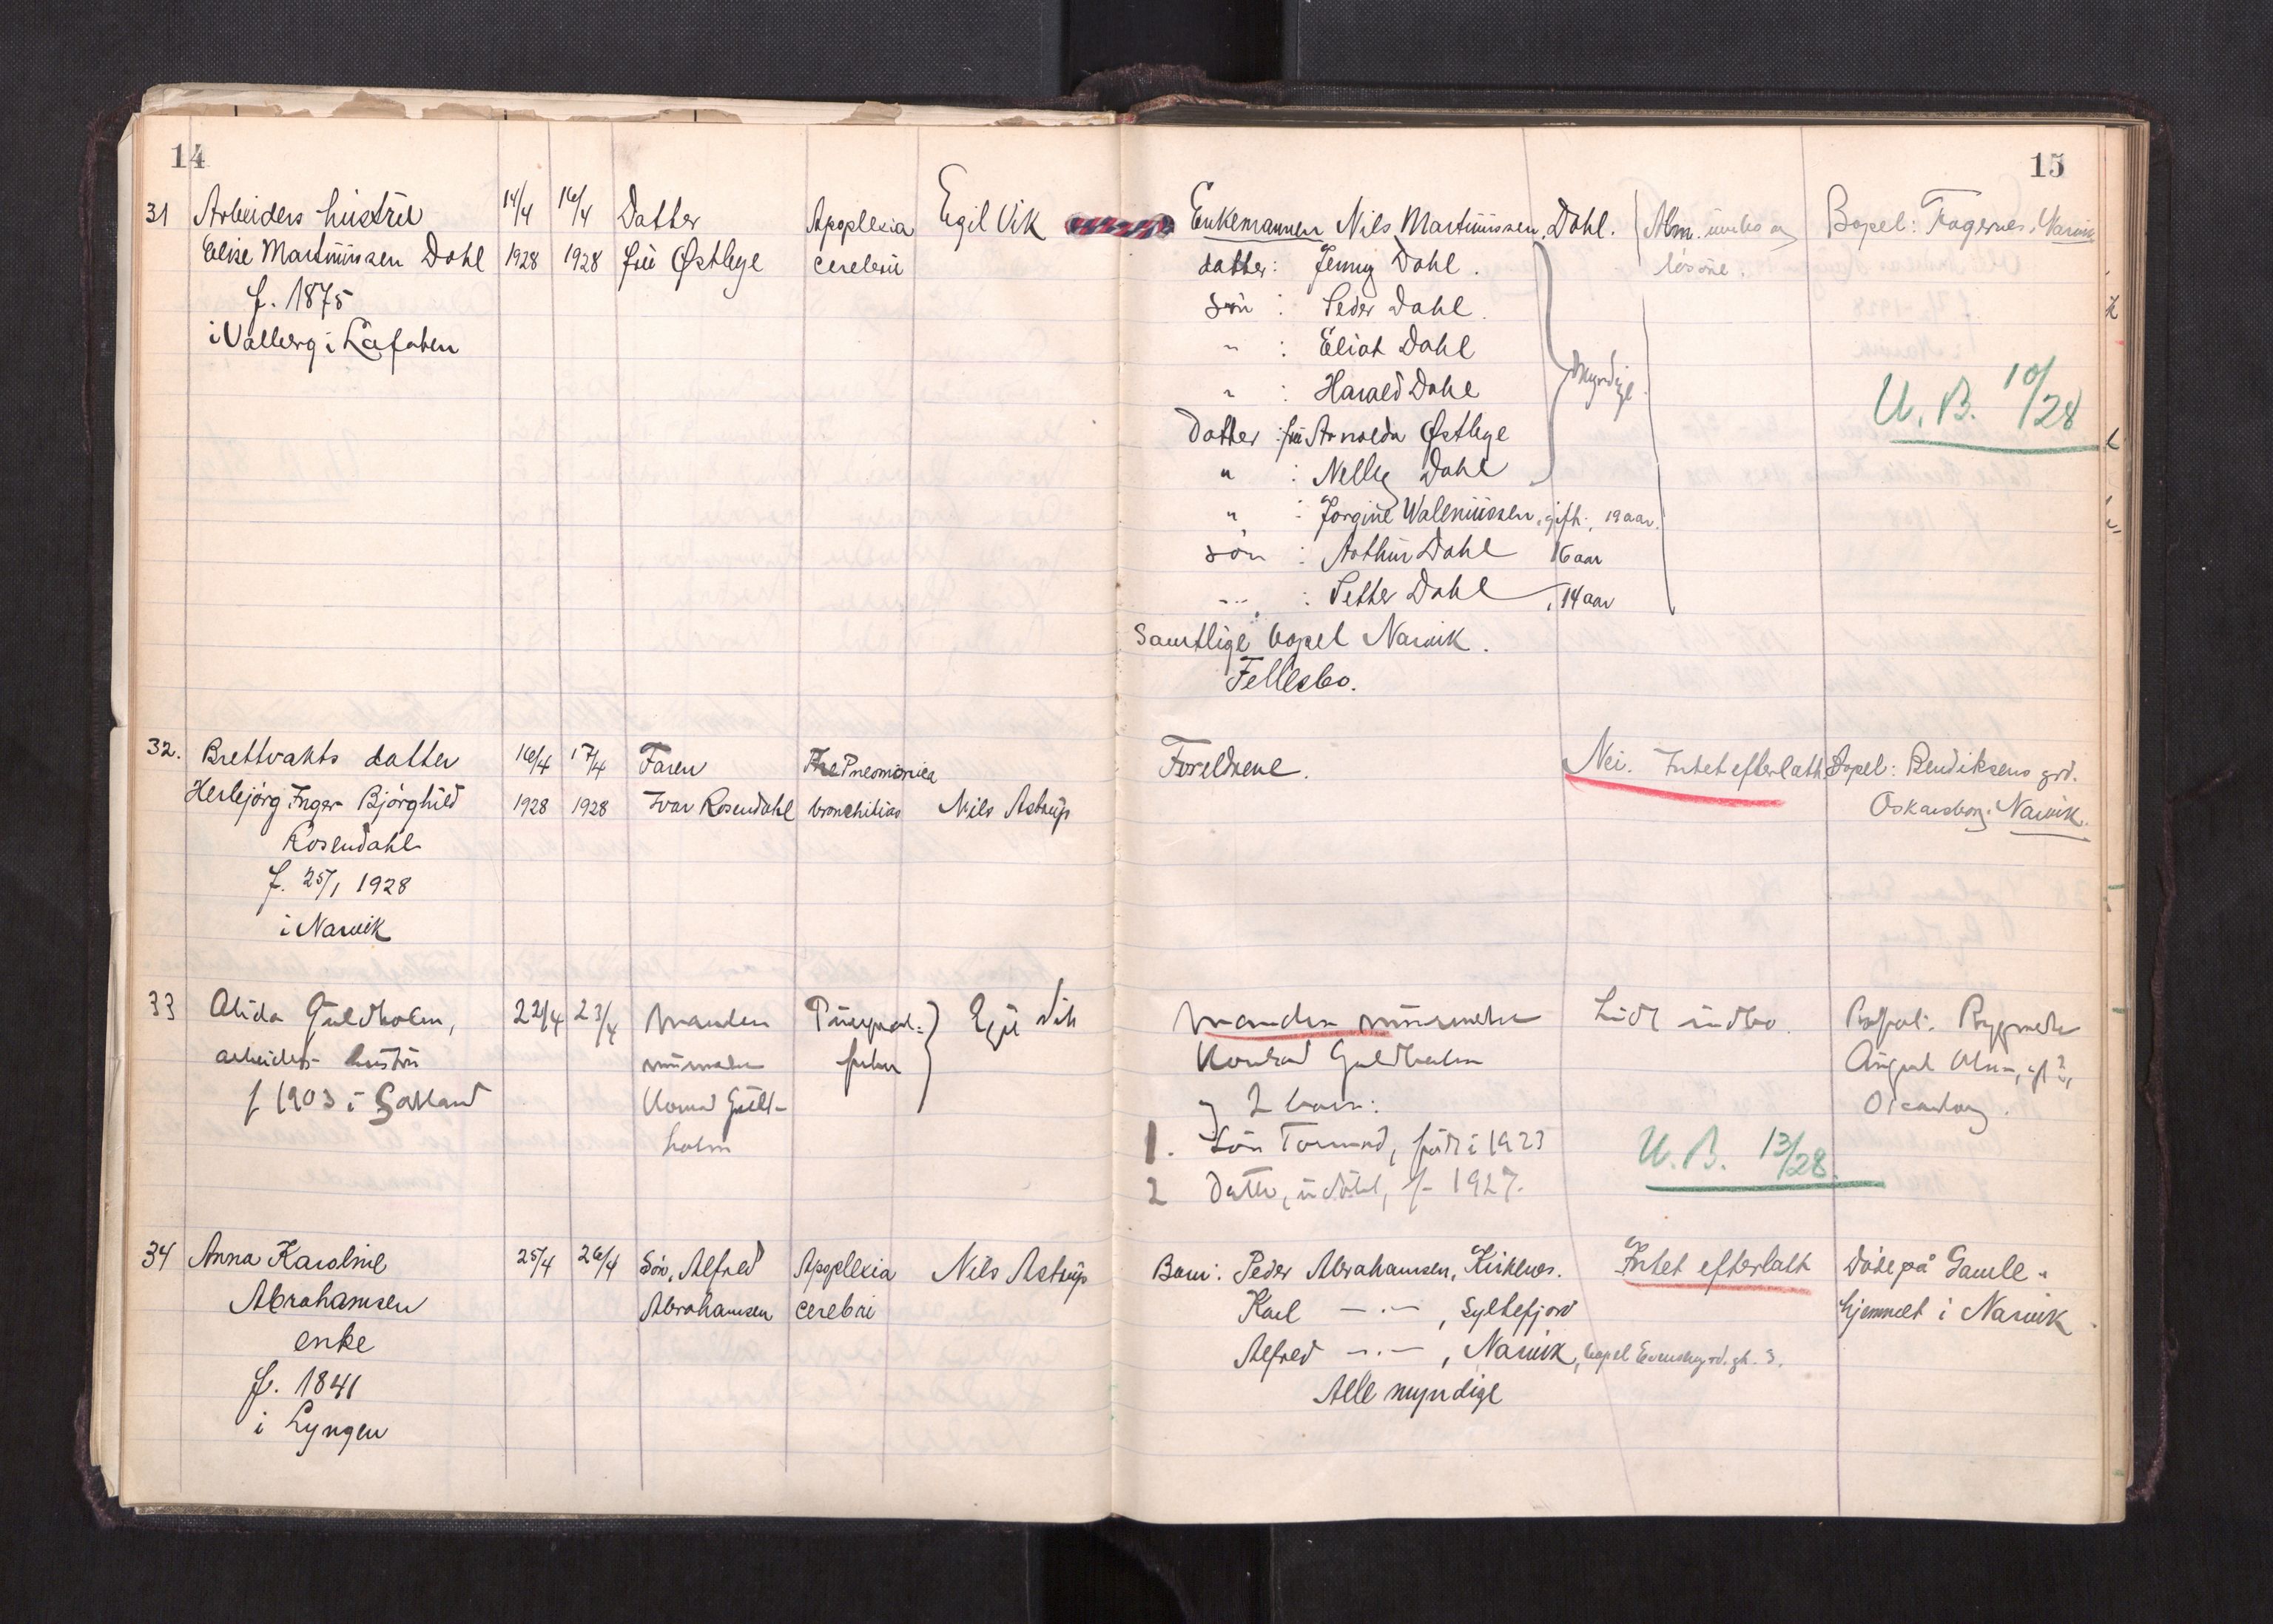 14
31 Arbeiders hustru 14/4 16/4 Datter Apoplexia Egil Vik
Elise Martinussen Dahl 1928 1928 fru Østbye cerebri
f. 1875
i Valberg i Lofoten
32. Brettvakts datter 16/4 17/4 Faren Pneomonica
Herbjörg Inger Bjørghild 1928 1928 Ivar Rosendahl bronchitias Nils Astrup
Rosendahl
f. 25/1 1928
i Narvik
33 Alida Guldholm, 22/4 23/4 Manden Egil Vik
arbeiders hustru murmester
f 1903 i Konrad Guld-
holm
34 Anna Karoline 25/4 26/4 Sön, Alfred Apoplexia Nils Astrup
Abrahamsen Abrahamsen cerebri
enke
f. 1841
i Lyngen
15
Enkemannen Nils Martinussen Dahl. Alm. innbo og Bopel: Fagernes, Narvik
datter: Jenny Dahl. lösöre.
sön : Peder Dahl.
" : Eliot Dahl
" : Harald Dahl myndige
U. B. 10/28
Datter : fru Arnolda Østbye
" : Nelly Dahl
" : Jorgine Waleniussen, gift, 19 aar.
sön : Arthur Dahl 16 aar
-"- : Petter Dahl, 14 aar
Samtlige bopel Narvik.
Fellesbo.
Foreldrene. Nei. Intet efterlatt. Bopel: Bendiksens grd.
Oskarsborg, Narvik.
Manden murmester Lidt indbo.
Konrad Guldholm August
og 2 barn: Oscarsborg.
1. Sön Tormod, född i 1923
U. B. 13/28.
2 Datter, udöbt, f. 1927.
Barn: Peder Abrahamsen, Kirkenes. Intet efterlatt Döde på Gamle-
Karl -"-, Syltefjord hjemmet i Narvik.
Alfred -"-, Narvik, bopel
Alle myndige